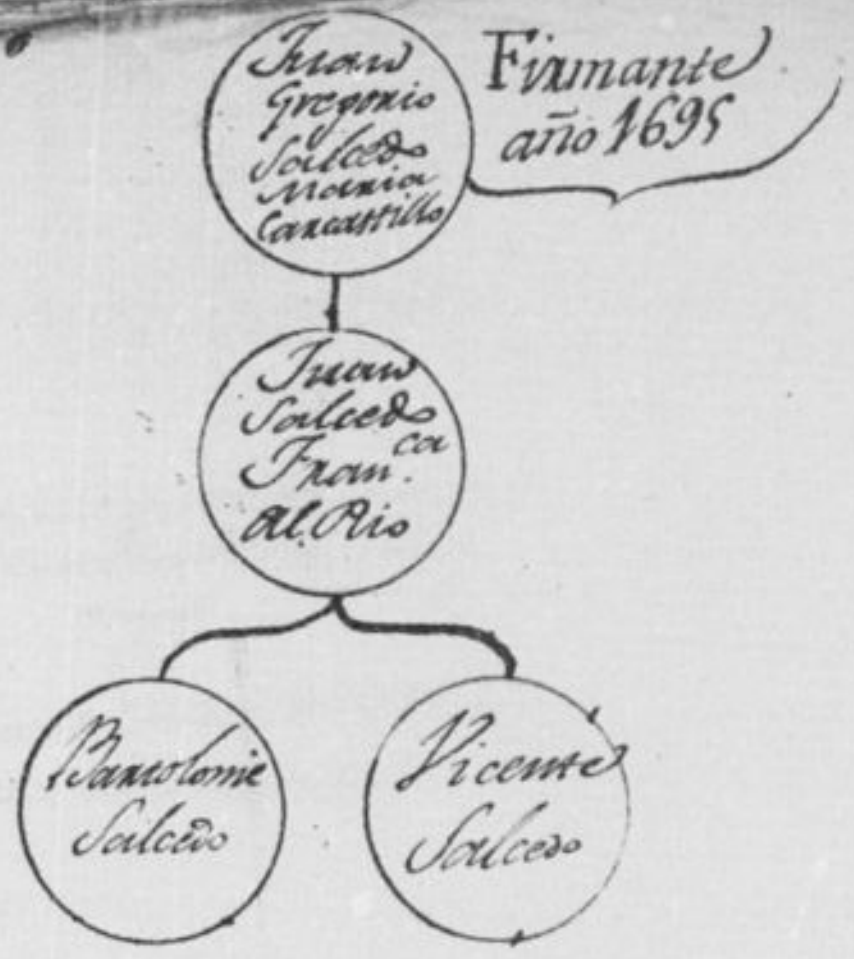 Juan
Gregorio
Salcedo
Maria
Carcastillo
Firmante
año 1695
Juan
Salcedo
Fran.ca
Al. Rio
Bartolome
Salcedo
Vicente
Salcedo